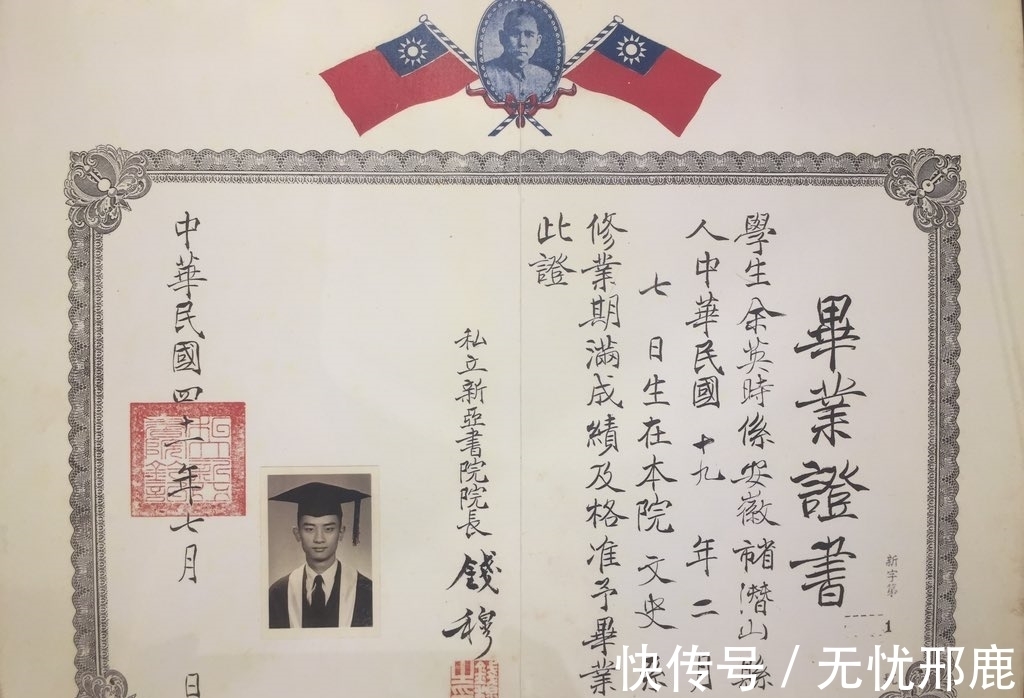 畢業證書
新字第
1
學生余英時係安徽省潛山縣
人中華民國十九年二月
七日生在本院文史系
修業期滿成績及格准予畢業
此證
私立新亞書院院長 錢穆
中華民國四十一年七月 日
快传号 / 无忧邢鹿